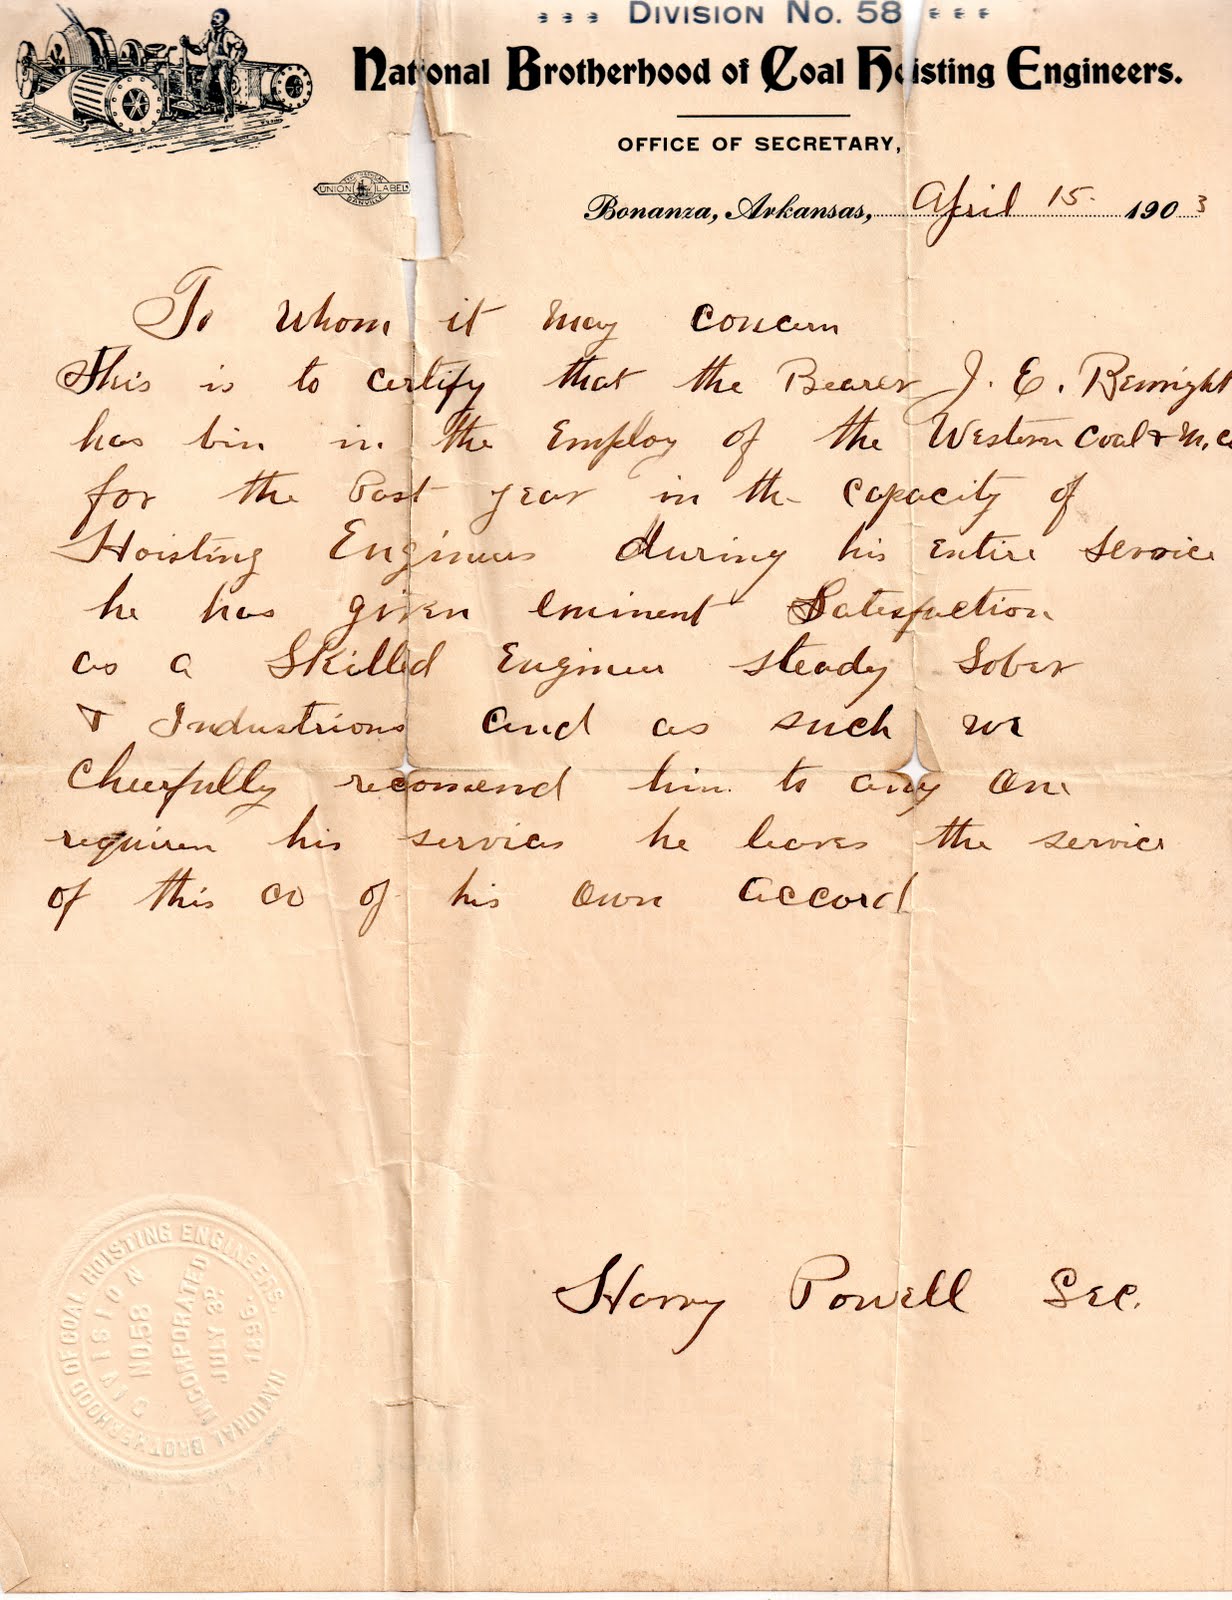 DIVISION NO. 58
National Brotherhood of Coal Hoisting Engineers.
OFFICE OF SECRETARY,
UNION LABEL
DANVILLE
Bonanza, Arkansas, April 15. 1903
To whom it may concern
This is to certify that the Bearer J. E. Bewright
has bin in the Employ of the Western Coal & M. Co
for the Past year in the capacity of
Hoisting Engineer during his entire service
he has given eminent Satesfaction
as a Skilled Engineer steady Sober
& Industrious and as such we
Cheerfully recomend him to any one
requiren his services he leaves the service
of this co of his own accord
Harry Powell Sec.
NATIONAL BROTHERHOOD OF COAL HOISTING ENGINEERS.
DIVISION
NO.58
INCORPORATED
JULY 3D
1896.